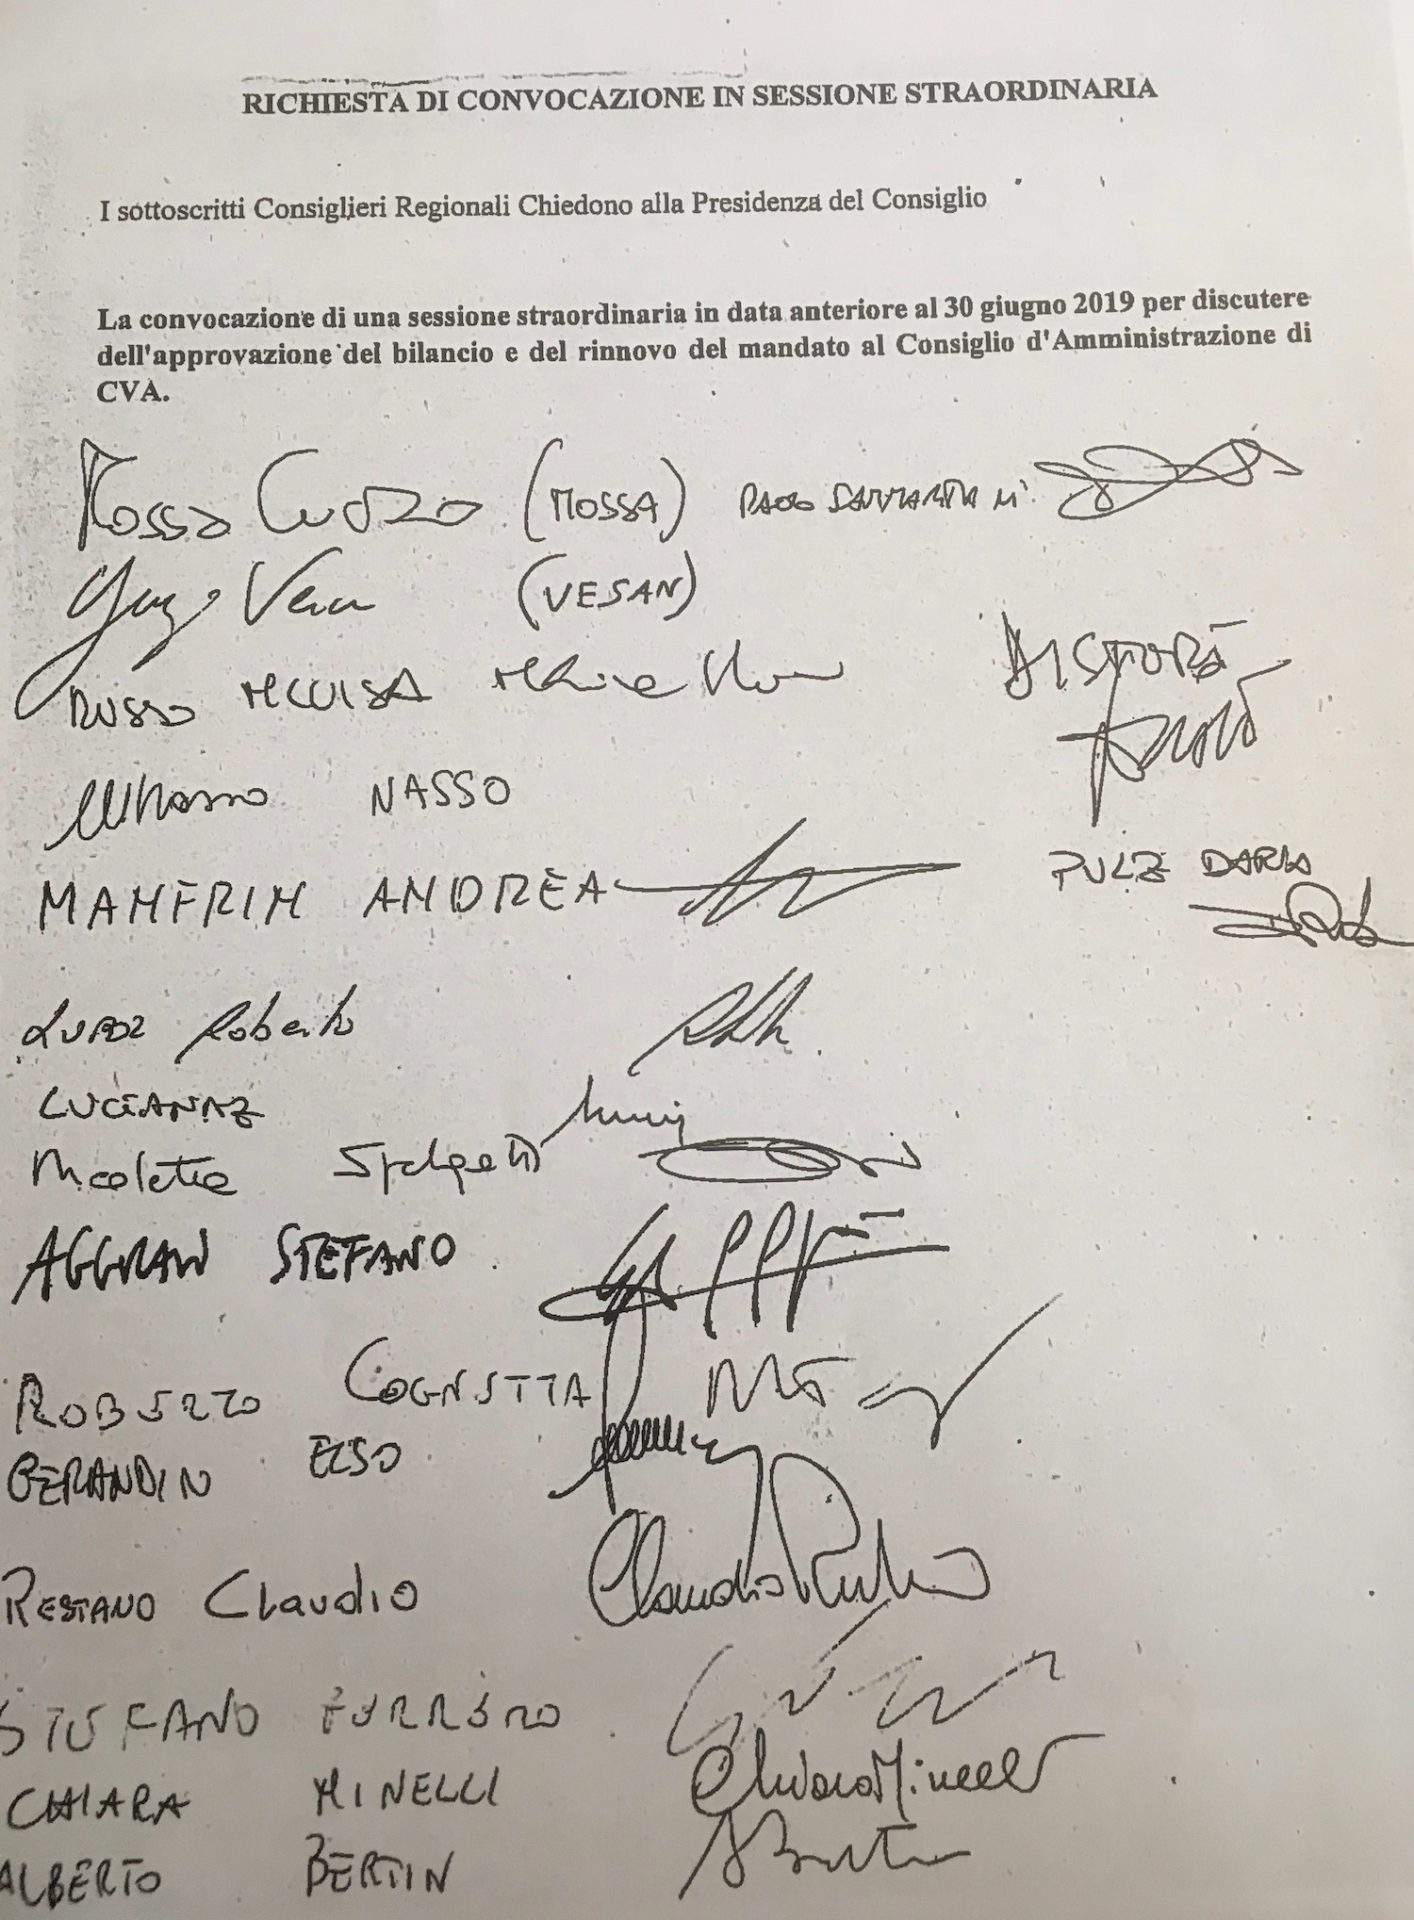 RICHIESTA DI CONVOCAZIONE IN SESSIONE STRAORDINARIA
I sottoscritti Consiglieri Regionali Chiedono alla Presidenza del Consiglio
La convocazione di una sessione straordinaria in data anteriore al 30 giugno 2019 per discutere
dell'approvazione del bilancio e del rinnovo del mandato al Consiglio d'Amministrazione di
CVA.
(MOSSA) PAOLO SAMMARITANI
(VESAN)
RUSSO M.LUISA DISTORT
NASSO
MANFRIN ANDREA PULZ DARIA
Roberto
LUCIANAZ
Nicoletta Spelgatti
AGGRAVI STEFANO
ROBERTO COGNETTA
GERANDIN ELSO
RESTANO Claudio Claudio Restano
STEFANO FERRERO
CHIARA MINELLI Chiara Minelli
ALBERTO BERTIN